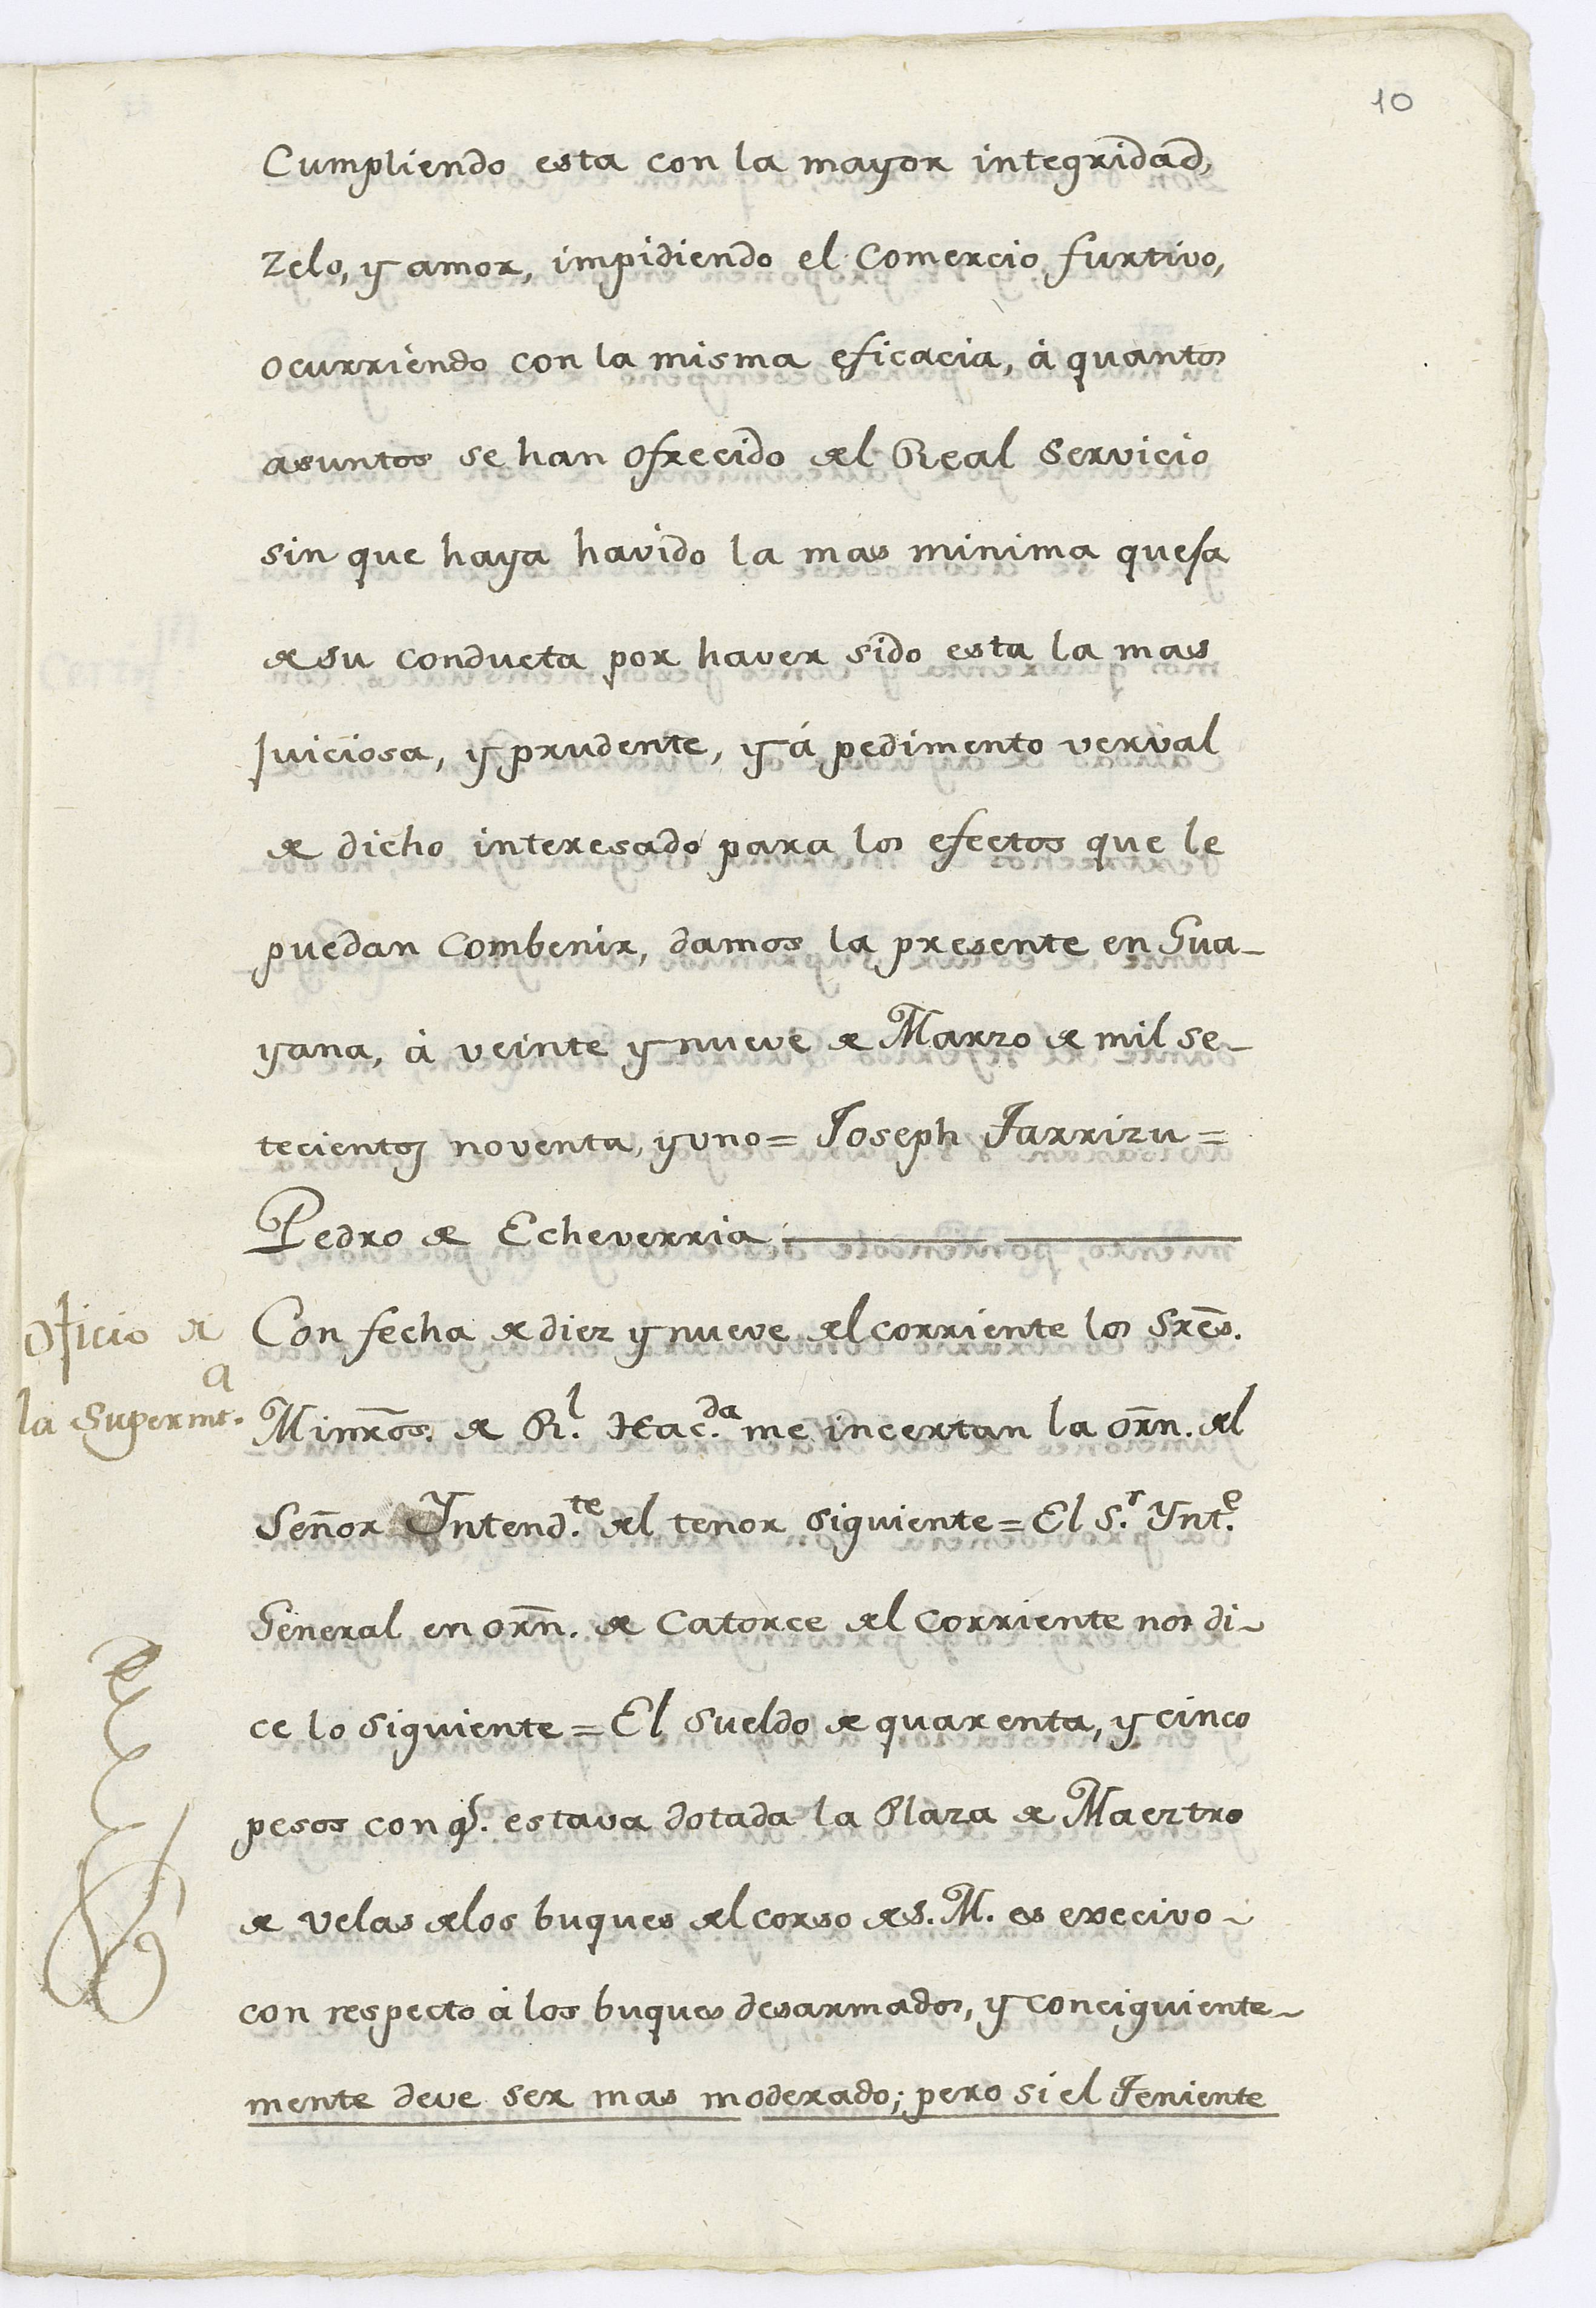 10
Cumpliendo esta con la mayor integridad,
Zelo, y amor, impidiendo el Comercio furtivo,
ocurriendo con la misma eficacia, á quantos
asuntos se han ofrecido del Real Servicio
sin que haya havido la mas minima quesa
de su conducta por haver sido esta la mas
Juiciosa, y prudente, y á pedimento verval
de dicho interesado para los efectos que le
puedan Combenir, damos la presente en Gua-
yana, á veinte y nueve de Marzo de mil se-
tecientos noventa, y uno = Joseph Jarrizu =
Pedro de Echeverria
Oficio de
la Superintª.
Con fecha de diez y nueve del corriente los Sres.
Minros. de Rl. Hacda. me incertan la orn. del
Señor Yntendte. del tenor siguiente = El Sr. Ynte.
General en orn. de Catorce del Corriente nos di-
ce lo siguiente = El Sueldo de quarenta, y cinco
pesos con q. estava dotada la Plaza de Maeztro
de velas de los buques del corso de S. M. es execivo -
con respecto á los buques desarmados, y conciguiente-
mente deve ser mas moderado; pero si el Teniente